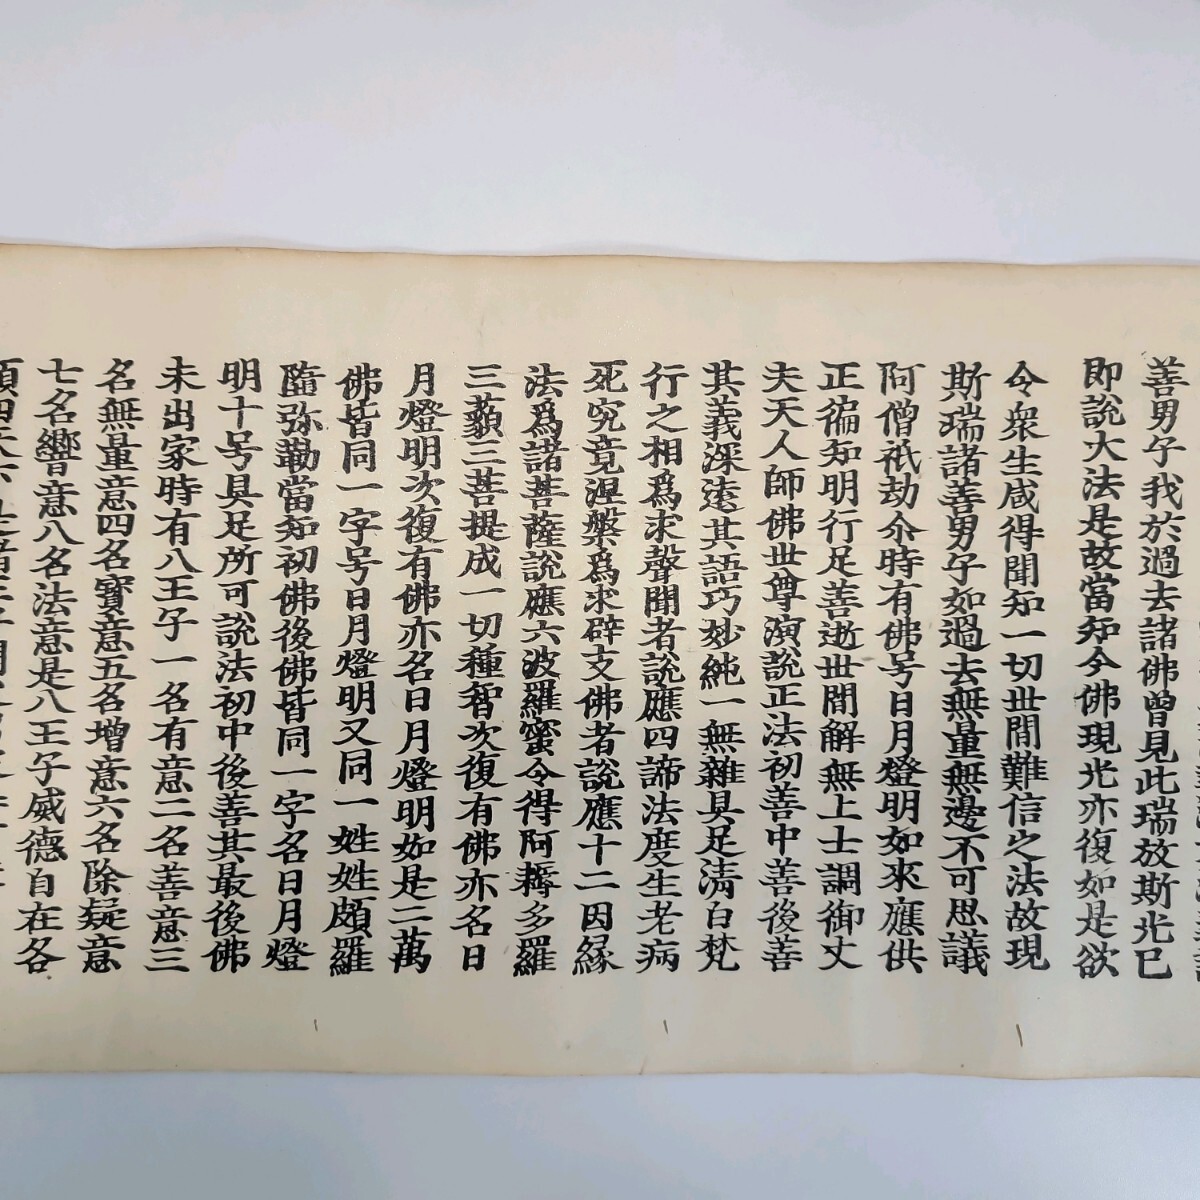 善男子我於過去諸佛曾見此瑞放斯光已
即說大法是故當知今佛現光亦復如是欲
令衆生咸得聞知一切世間難信之法故現
斯瑞諸善男子如過去無量無邊不可思議
阿僧祇劫尒時有佛号日月燈明如來應供
正徧知明行足善逝世間解無上士調御丈
夫天人師佛世尊演說正法初善中善後善
其義深遠其語巧妙純一無雜具足清白梵
行之相爲求聲聞者說應四諦法度生老病
死究竟涅槃爲求辟支佛者說應十二因縁
法爲諸菩薩說應六波羅蜜令得阿耨多羅
三藐三菩提成一切種智次復有佛亦名日
月燈明次復有佛亦名日月燈明如是二萬
佛皆同一字号日月燈明又同一姓姓頗羅
墮弥勒當知初佛後佛皆同一字名日月燈
明十号具足所可說法初中後善其最後佛
未出家時有八王子一名有意二名善意三
名無量意四名寶意五名增意六名除疑意
七名響意八名法意是八王子威德自在各